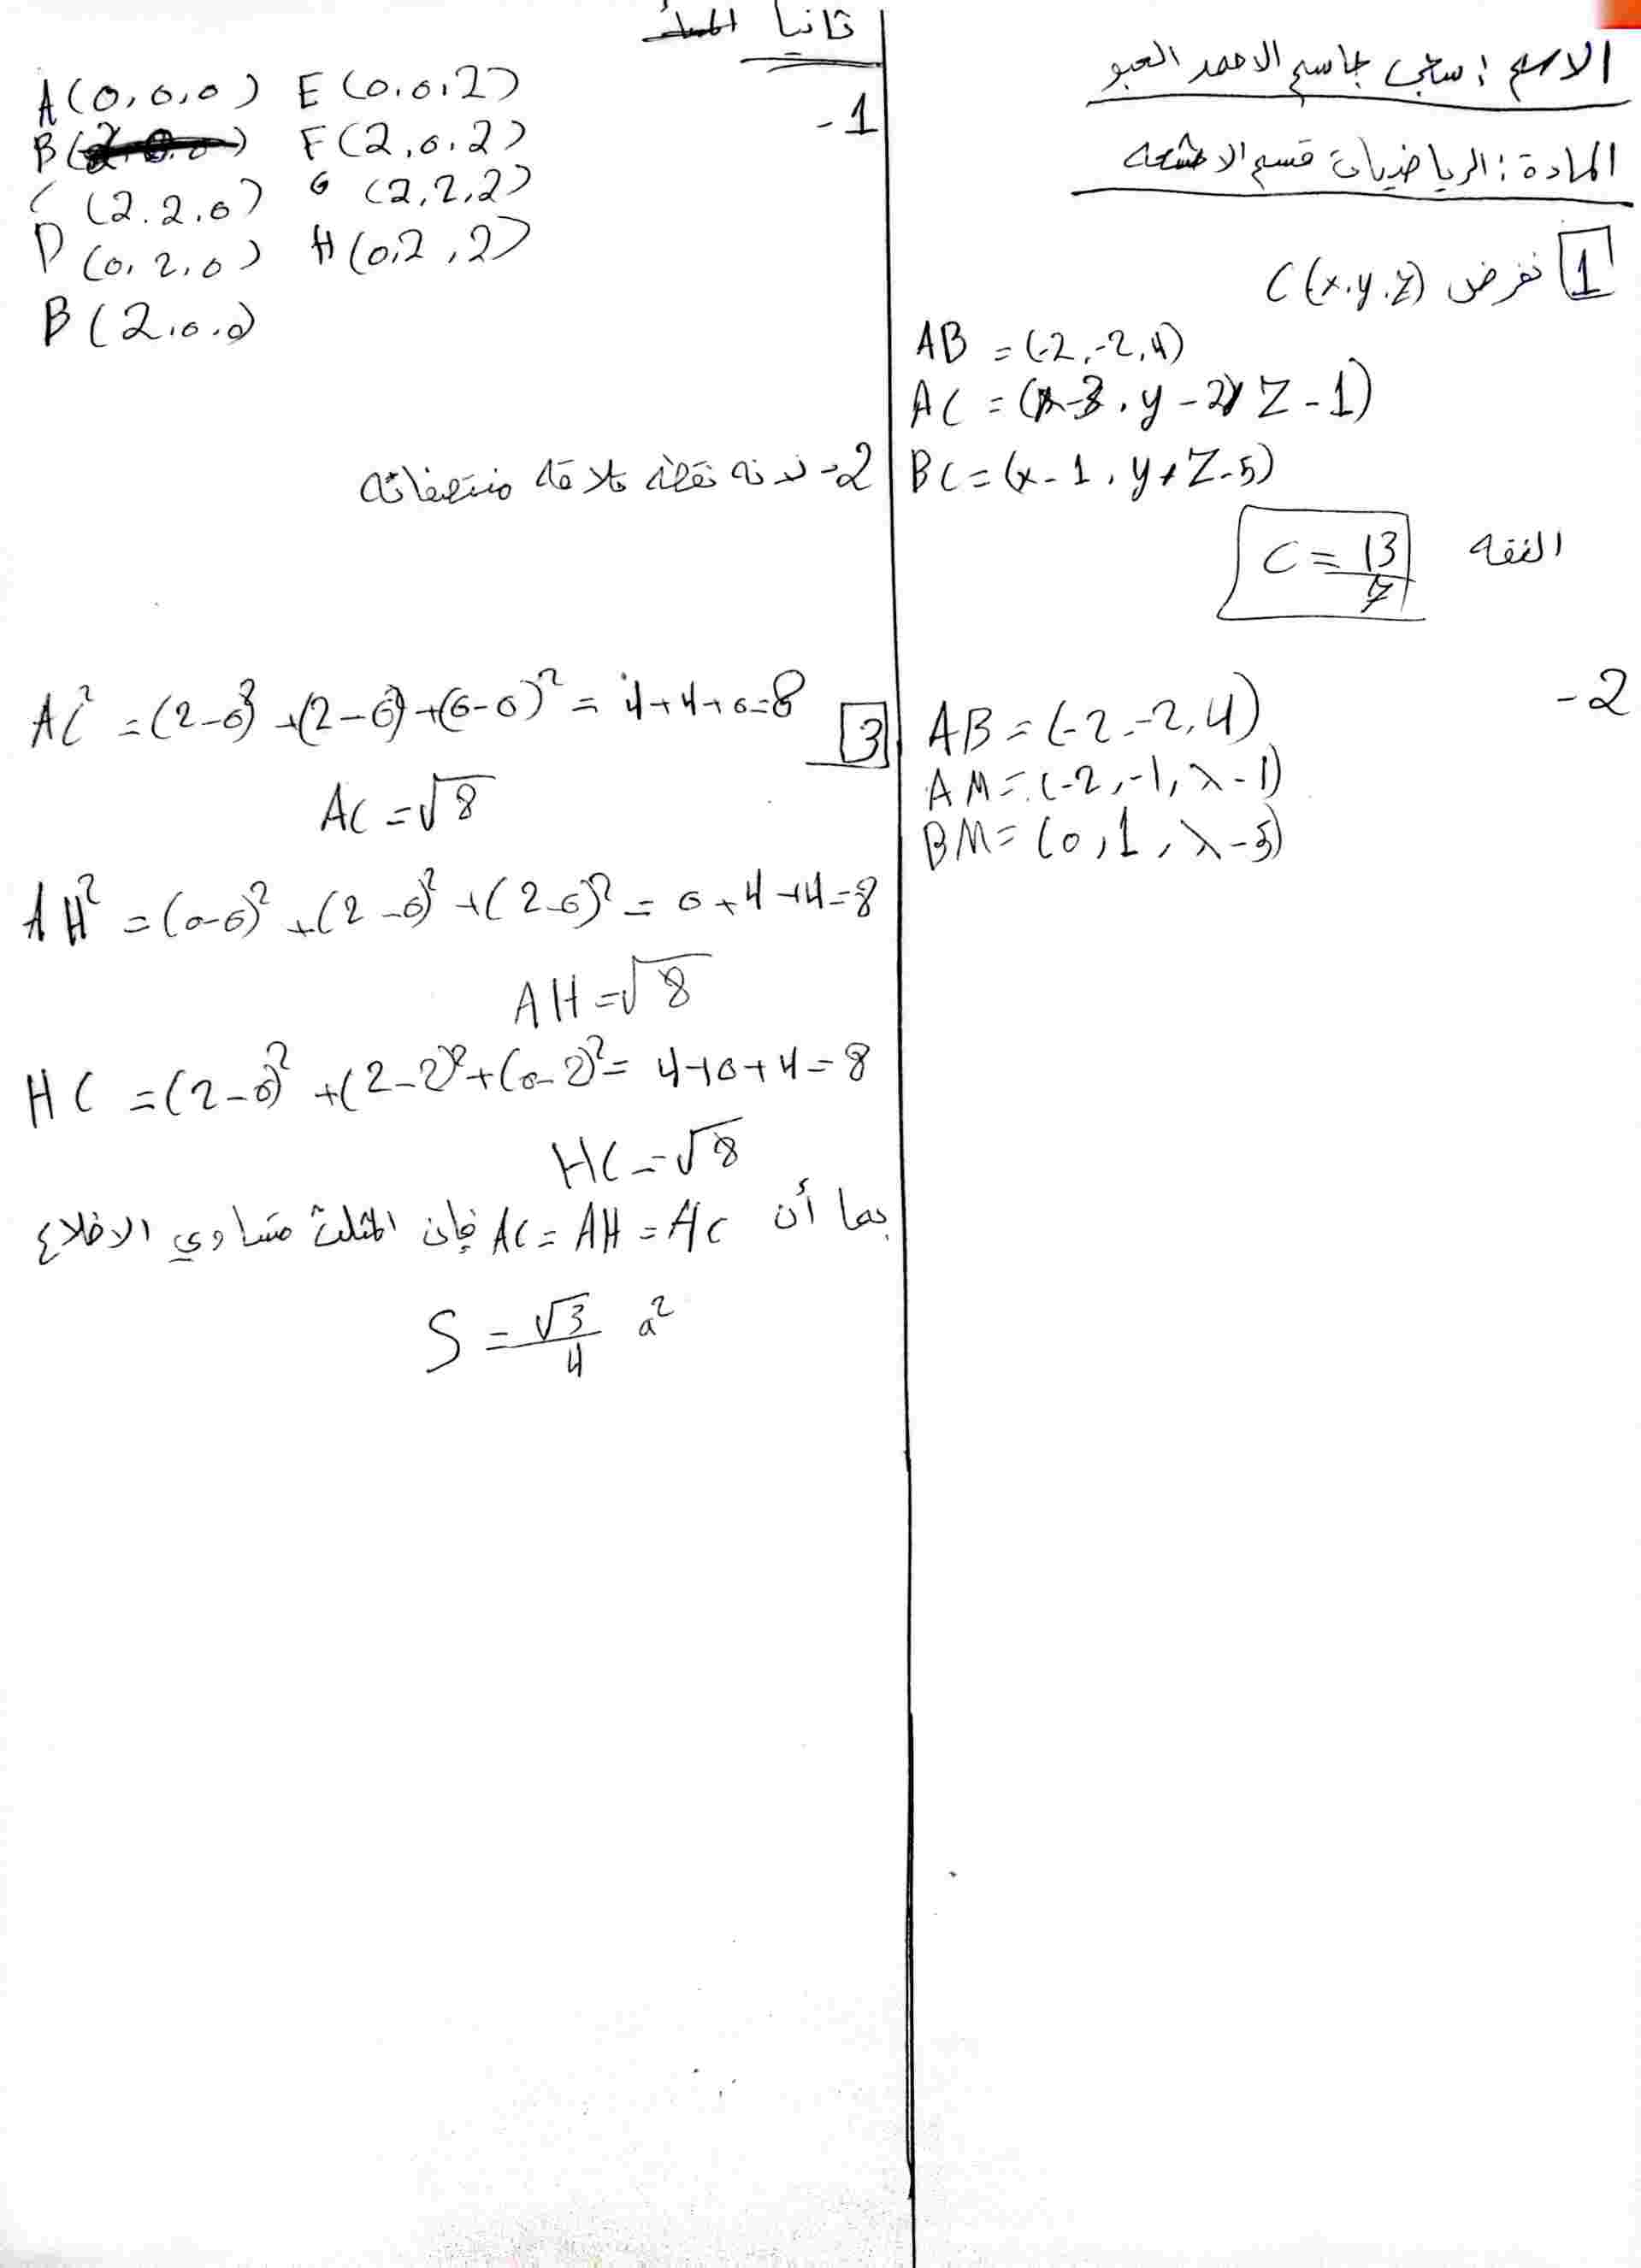 الاسم : سجى جاسم الاحمد العبو
المادة : الرياضيات قسم الاشعه
1 نفرض C(x.y.z)
AB = (-2,-2,4)
AC = (x-3, y-2, Z-1)
BC = (x-1, y+Z-5)
C = 13/7
-2
AB = (-2,-2,4)
AM = (-2,-1,λ-1)
BM = (0,1,λ-5)
ثانيا
-1
A(0,0,0) E(0,0,2)
B F(2,0,2)
C (2.2.0) G (2,2,2)
D (0,2,0) H(0,2,2)
B(2.0.0)
2- نقطة منتصفاته
3
AC² = (2-0)² + (2-0)² + (0-0)² = 4+4+0=8
AC = √8
AH² = (0-0)² + (2-0)² + (2-0)² = 0+4+4=8
AH = √8
HC = (2-0)² + (2-2)² + (0-2)² = 4+0+4=8
HC = √8
بما أن AC = AH = HC فإن المثلث متساوي الاضلاع
S = √3/4 a²